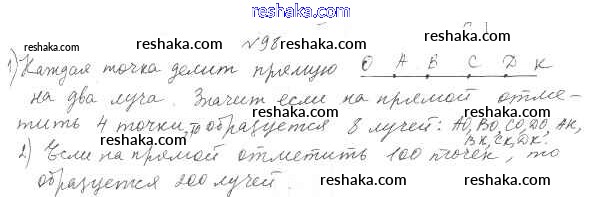 reshaka.com
№98
reshaka.com reshaka.com reshaka.com
1) Каждая точка делит прямую O A B C D K
на два луча. Значит если на прямой отме-
reshaka.com reshaka.com reshaka.com
тить 4 точки, то образуется 8 лучей: AO, BO, CO, DO, AK,
BK, CK, DK.
2) Если на прямой отметить 100 точек, то
reshaka.com reshaka.com reshaka.com
образуется 200 лучей.
reshaka.com